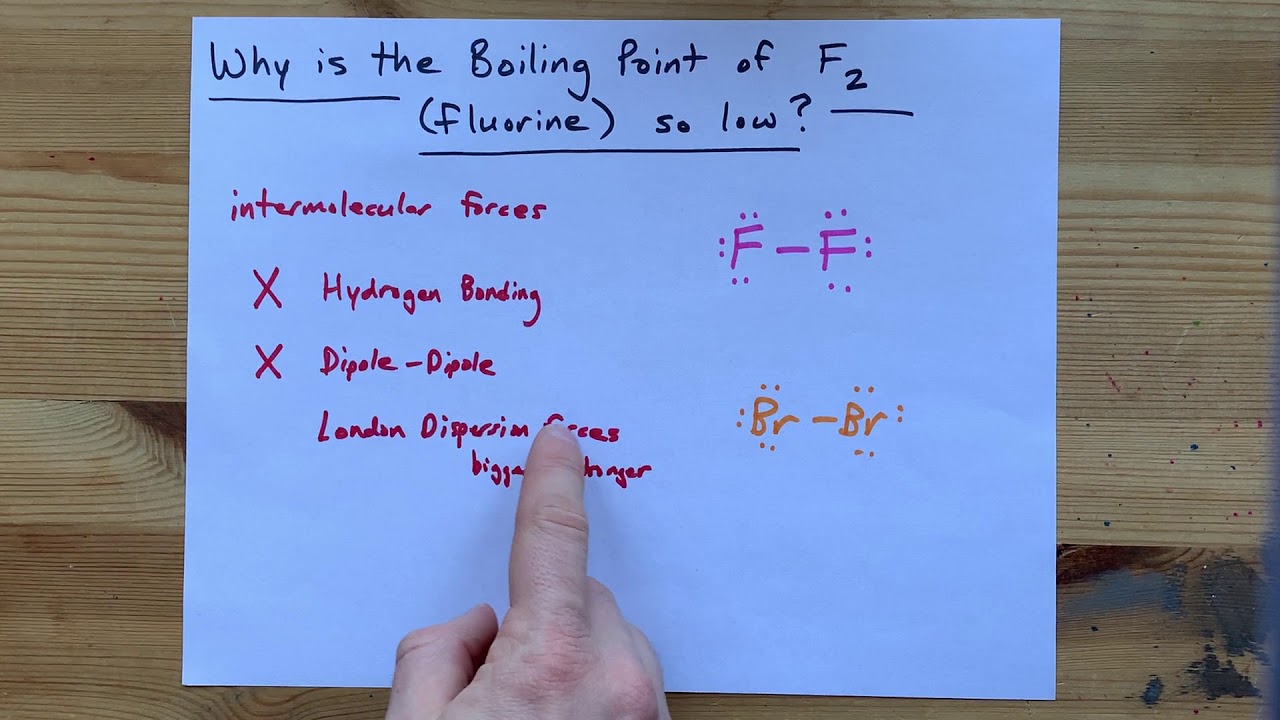 Why is the Boiling Point of F2
(fluorine) so low?
intermolecular forces
X Hydrogen Bonding
X Dipole-Dipole
London Dispersion forces
:F-F:
:Br-Br: